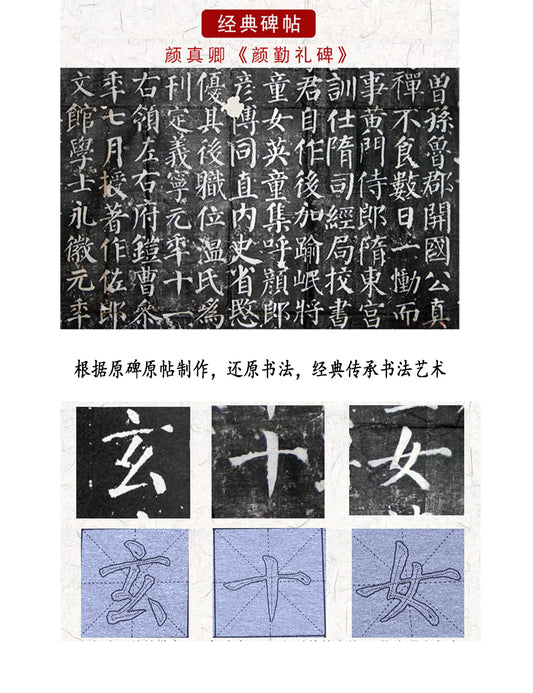 经典碑帖
颜真卿《颜勤礼碑》
曽孫魯郡開國公真
禪不食數日一慟而
事黄門侍郎隋東宫
訓仕隋司經局挍書
君自作後加踰岷將
童女英童集呼顔郎
彦博同直内史省愍
優其後職位温氏爲
刊定義寧元年十一
右領左右府鎧曹叅
年七月授著作佐郎
文館學士永徽元年
根据原碑原帖制作，还原书法，经典传承书法艺术
玄 十 女
玄 十 女